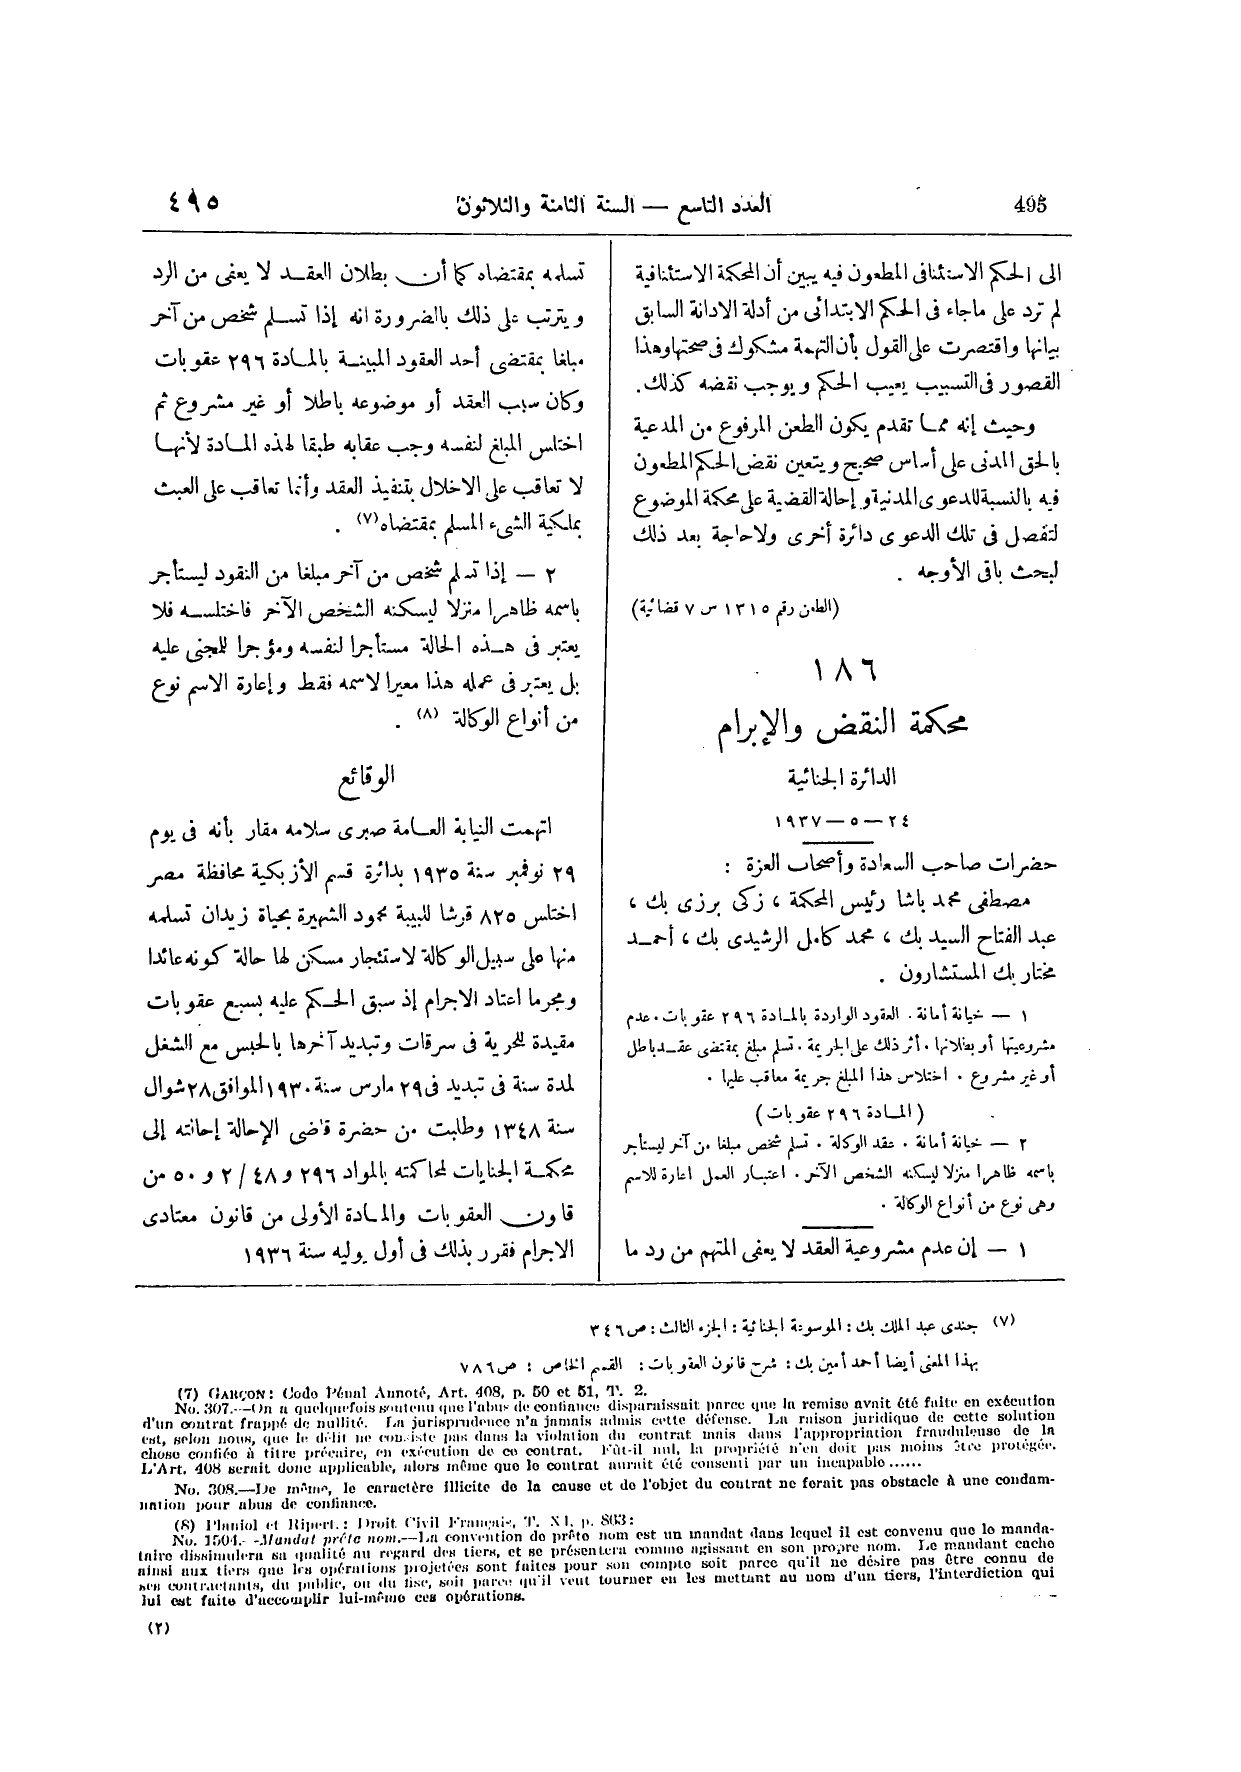 495
العدد التاسع — السنة الثامنة والثلاثون
٤٩٥
الى الحكم الاستئنافى المطعون فيه يبين أن المحكمة الاستئنافية
لم ترد على ماجاء فى الحكم الابتدائى من أدلة الادانة السابق
بيانها واقتصرت على القول بأن التهمة مشكوك فى صحتها وهذا
القصور فى التسبيب يعيب الحكم ويوجب نقضه كذلك.
وحيث إنه مما تقدم يكون الطعن المرفوع من المدعية
بالحق المدنى على أساس صحيح ويتعين نقض الحكم المطعون
فيه بالنسبة للدعوى المدنية وإحالة القضية على محكمة الموضوع
لتفصل فى تلك الدعوى دائرة أخرى ولاحاجة بعد ذلك
لبحث باقى الأوجه .
(الطعن رقم ١٣١٥ س ٧ قضائية)
١٨٦
محكمة النقض والإبرام
الدائرة الجنائية
٢٤ — ٥ — ١٩٣٧
حضرات صاحب السعادة وأصحاب العزة :
مصطفى محمد باشا رئيس المحكمة ، زكى برزى بك ،
عبد الفتاح السيد بك ، محمد كامل الرشيدى بك ، أحمد
مختار بك المستشارون .
١ — خيانة أمانة . العقود الواردة بالمادة ٢٩٦ عقوبات . عدم
مشروعيتها أو بطلانها . أثر ذلك على الجريمة . تسلم مبلغ بمقتضى عقد باطل
أو غير مشروع . اختلاس هذا المبلغ جريمة معاقب عليها .
( المادة ٢٩٦ عقوبات )
٢ — خيانة أمانة . عقد الوكالة . تسلم شخص مبلغا من آخر ليستأجر
باسمه ظاهرا منزلا ليسكنه الشخص الآخر . اعتبار العمل اعارة للاسم
وهى نوع من أنواع الوكالة .
١ — إن عدم مشروعية العقد لا يعفى المتهم من رد ما
تسلمه بمقتضاه كما أن بطلان العقد لا يعفى من الرد
ويترتب على ذلك بالضرورة انه إذا تسلم شخص من آخر
مبلغا بمقتضى أحد العقود المبينة بالمادة ٢٩٦ عقوبات
وكان سبب العقد أو موضوعه باطلا أو غير مشروع ثم
اختلس المبلغ لنفسه وجب عقابه طبقا لهذه المادة لأنها
لا تعاقب على الاخلال بتنفيذ العقد وأنما تعاقب على العبث
بملكية الشىء المسلم بمقتضاه(٧) .
٢ — إذا تسلم شخص من آخر مبلغا من النقود ليستأجر
باسمه ظاهرا منزلا ليسكنه الشخص الآخر فاختلسه فلا
يعتبر فى هذه الحالة مستأجرا لنفسه ومؤجرا للمجنى عليه
بل يعتبر فى عمله هذا معيرا لاسمه فقط وإعارة الاسم نوع
من أنواع الوكالة (٨) .
الوقائع
اتهمت النيابة العامة صبرى سلامه مقار بأنه فى يوم
٢٩ نوفمبر سنة ١٩٣٥ بدائرة قسم الأزبكية محافظة مصر
اختلس ٨٢٥ قرشا للبيبة محمود الشهيرة بحياة زيدان تسلمه
منها على سبيل الوكالة لاستئجار مسكن لها حالة كونه عائدا
ومجرما اعتاد الاجرام إذ سبق الحكم عليه بسبع عقوبات
مقيدة للحرية فى سرقات وتبديد آخرها بالحبس مع الشغل
لمدة سنة فى تبديد فى ٢٩ مارس سنة ١٩٣٠ الموافق ٢٨ شوال
سنة ١٣٤٨ وطلبت من حضرة قاضى الإحالة إحالته إلى
محكمة الجنايات لمحاكمته بالمواد ٢٩٦ و ٤٨ / ٢ و ٥٠ من
قانون العقوبات والمادة الأولى من قانون معتادى
الاجرام فقرر بذلك فى أول يوليه سنة ١٩٣٦
(٧) جندى عبد الملك بك : الموسوعة الجنائية : الجزء الثالث : ص ٣٤٦
بهذا المعنى أيضا أحمد أمين بك : شرح قانون العقوبات : القسم الخاص : ص ٧٨٦
(7) GARÇON : Code Pénal Annoté, Art. 408, p. 50 et 51, T. 2.
No. 307.—On a quelquefois soutenu que l'abus de confiance disparaissait parce que la remise avait été faite en exécution
d'un contrat frappé de nullité. La jurisprudence n'a jamais admis cette défense. La raison juridique de cette solution
est, selon nous, que le délit ne consiste pas dans la violation du contrat mais dans l'appropriation frauduleuse de la
chose confiée à titre précaire, en exécution de ce contrat. Fût-il nul, la propriété n'en doit pas moins être protégée.
L'Art. 408 serait donc applicable, alors même que le contrat aurait été consenti par un incapable......
No. 308.—De même, le caractère illicite de la cause et de l'objet du contrat ne ferait pas obstacle à une condam-
nation pour abus de confiance.
(8) Planiol et Ripert : Droit Civil Français, T. XI, p. 803 :
No. 1504.—Mandat prête nom.—La convention de prête nom est un mandat dans lequel il est convenu que le manda-
taire dissimulera sa qualité au regard des tiers, et se présentera comme agissant en son propre nom. Le mandant cache
ainsi aux tiers que les opérations projetées sont faites pour son compte soit parce qu'il ne désire pas être connu de
ses contractants, du public, ou du fisc, soit parce qu'il veut tourner en les mettant au nom d'un tiers, l'interdiction qui
lui est faite d'accomplir lui-même ces opérations.
(٢)